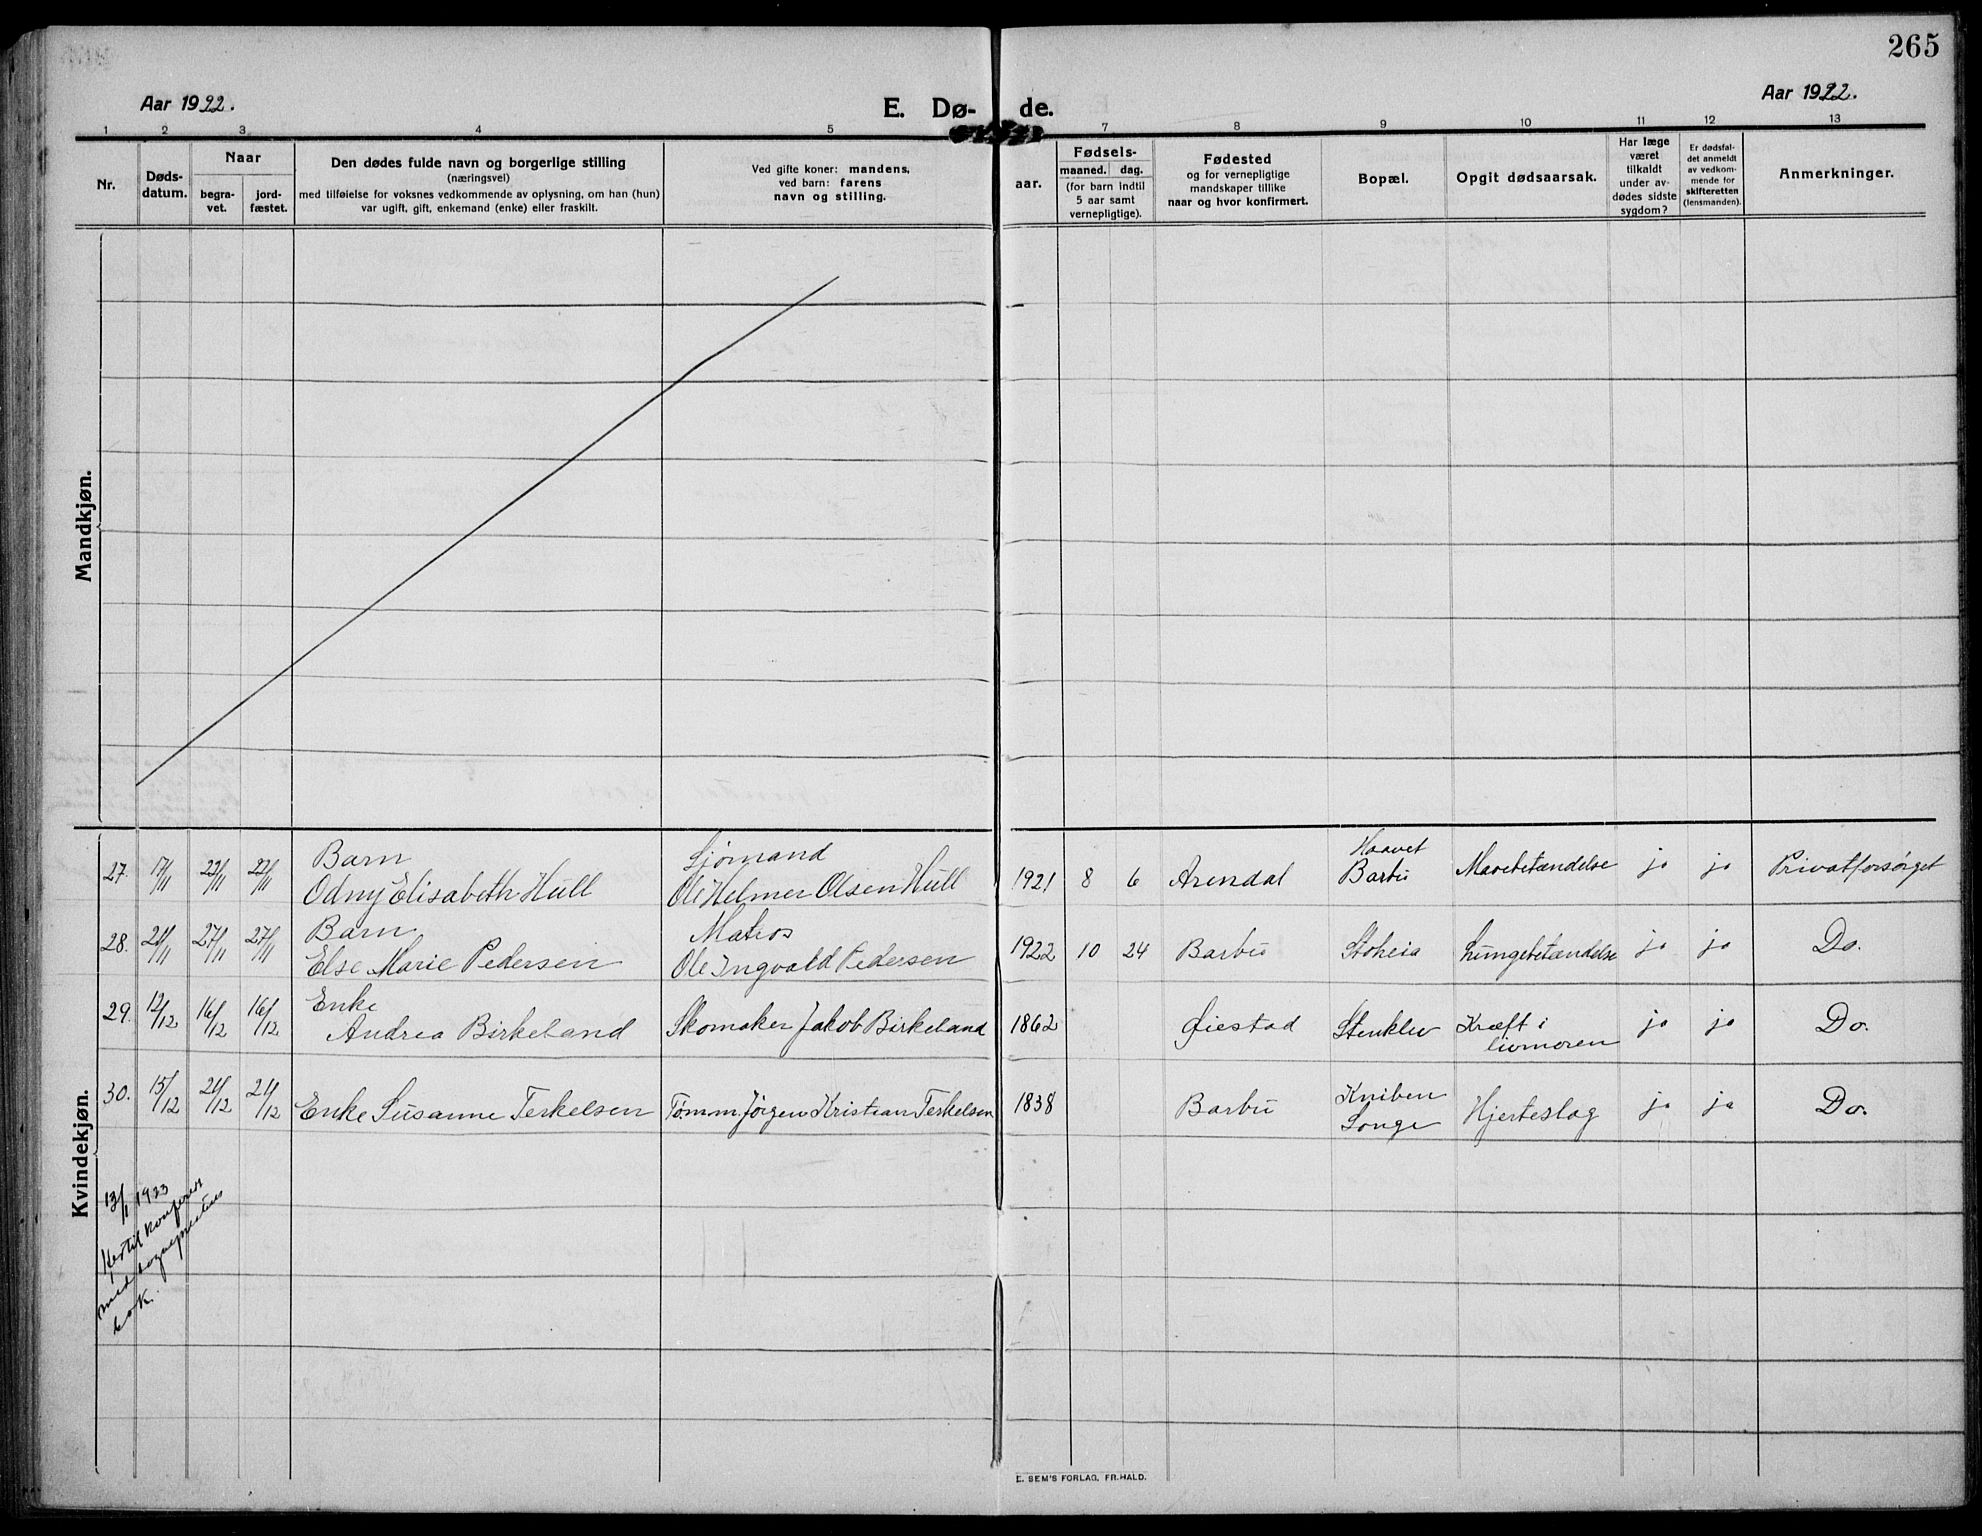 265
Aar 1922.
E. Dø- de.
Aar 1922.
1 2 3 4 5 7 8 9 10 11 12 13
Nr.
Døds-
datum.
Naar
begra-
vet.
jord-
fæstet.
Den dødes fulde navn og borgerlige stilling
(næringsvei)
med tilføielse for voksnes vedkommende av oplysning, om han (hun)
var ugift, gift, enkemand (enke) eller fraskilt.
Ved gifte koner: mandens,
ved barn: farens
navn og stilling.
Fødsels-
aar.
maaned. dag.
(for barn indtil
5 aar samt
vernepligtige).
Fødested
og for vernepligtige
mandskaper tillike
naar og hvor konfirmert.
Bopæl.
Opgit dødsaarsak.
Har læge
været
tilkaldt
under av-
dødes sidste
sygdom?
Er dødsfal-
det anmeldt
av vedkom-
mende for
skifteretten
(lensmanden).
Anmerkninger.
Mandkjøn.
Kvindekjøn.
27. 17/11 22/11 22/11 Barn Sjømand Haavet
Odny Elisabeth Hull Ole Helmer Olsen Hull 1921 8 6 Arendal Barbu Mavebetændelse ja ja Privatforsørget
28. 21/11 27/11 27/11 Barn Matros
Else Marie Pedersen Ole Ingvald Pedersen 1922 10 24 Barbu Stoheia Lungebetændelse ja ja Do.
29. 12/12 16/12 16/12 Enke
Andrea Birkeland Skomaker Jakob Birkeland 1862 Øiestad Stenklev Kræft i ja ja Do.
livmoren
30. 15/12 21/12 21/12 Enke Susanne Terkelsen Tømm. Jørgen Kristian Terkelsen 1838 Barbu Kniben Hjerteslag ja ja Do.
Songe
13/1 1923
Hertil konferert
med sogneprestens
bok.
E. SEM'S FORLAG, FR.HALD.